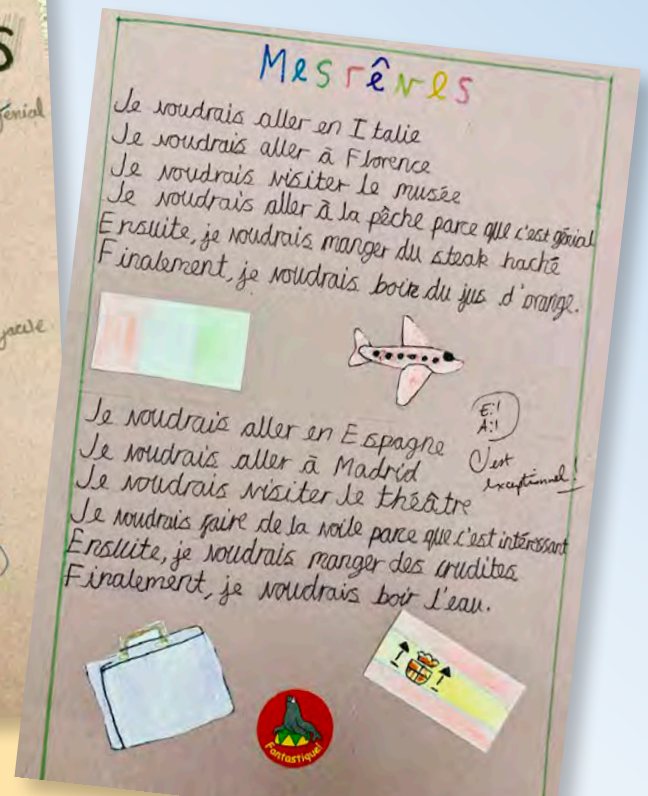 s
Mes rêves
génial
Je voudrais aller en Italie
Je voudrais aller à Florence
Je voudrais visiter le musée
Je voudrais aller à la pêche parce que c'est génial
Ensuite, je voudrais manger du steak haché
Finalement, je voudrais boire du jus d'orange.
facile
Je voudrais aller en Espagne
Je voudrais aller à Madrid
Je voudrais visiter le théâtre
Je voudrais faire de la voile parce que c'est intéressant
Ensuite, je voudrais manger des crudites
Finalement, je voudrais boir l'eau.
E:1
A:1
C'est
exceptionnel!
Fantastique!